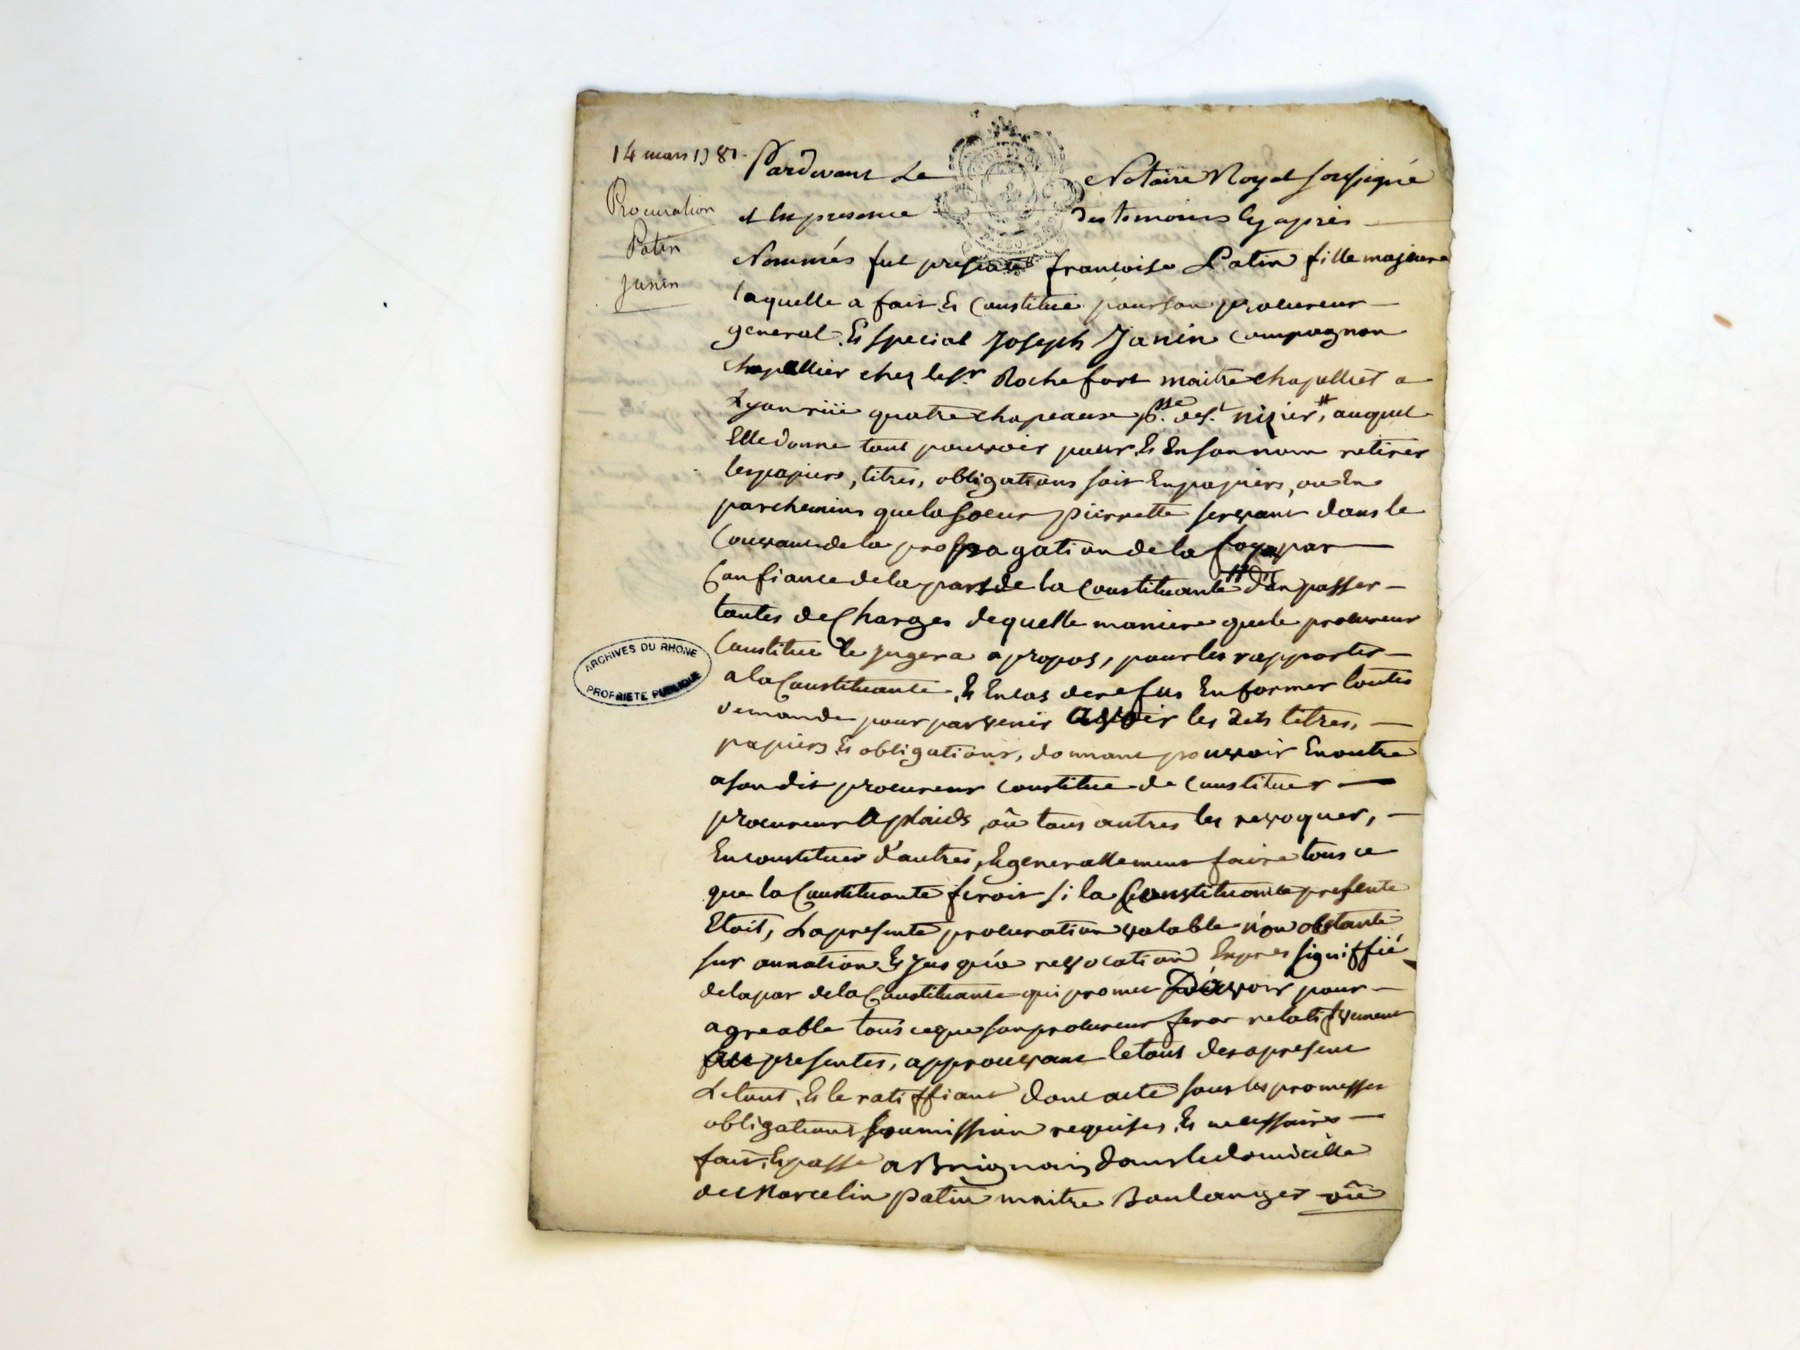 14 mars 1781.
Procuration
Patin
Janin
Pardevant Le Notaire Royal soussigné
et En presence des temoins Cy après
Nommés fut presente françoise Patin fille majeure
laquelle a fait & Constitué pour son procureur
general & special Joseph Janin Compagnon
chapellier chez le sr. Rochefort maitre chapellier a
Lyon rüe quatre chapeaux psse. de st. nizier, auquel
Elle donne tout pouvoir pour & En son nom retirer
les papiers, titres, obligations soit En papiers, ou En
parchemins que la soeur pierrette servant dans le
Couvant de la propagation de la foy a par
Confiance de la part de la Constituante # d'En passer
toutes deCharges de quelle maniere que le procureur
Constitué le jugera a propos, pour les rapporter
a la Constituante, & En cas de refus En former toutes
demande pour parvenir avoir les dits titres,
papiers & obligations, donnant pouvoir En outre
a son dit procureur constitué de constituer
procureur a plaids, où tous autres les revoquer,
En constituer d'autres, & generallement faire tous ce
que la Constituante feroit si la Constituante presente
Etoit, La presente procuration valable non obstante
sur annation & jus qu'a revocation Expres signiffié
de la par de la Constituante qui promet d'avoir pour
agreable tous ce que son procureur fera relativement
aux presentes, approuvant le tout des a present
Le tout, & le ratiffiant dont acte sous les promesses
obligations soumission requises & necessaires
fait & passé a Brignais dans le domicille
de Marcelin patin maitre Boulanger où
ARCHIVES DU RHONE
PROPRIETE PUBLIQUE